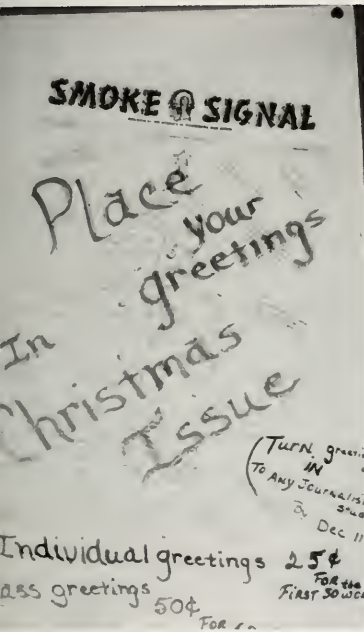 SMOKE SIGNAL
Place
your
greetings
In
Christmas
Issue
(Turn greeti
IN
To Any Journalis
Dec 11
Individual greetings 25¢
FOR the
FIRST 50 WO
ass greetings 50¢
FOR